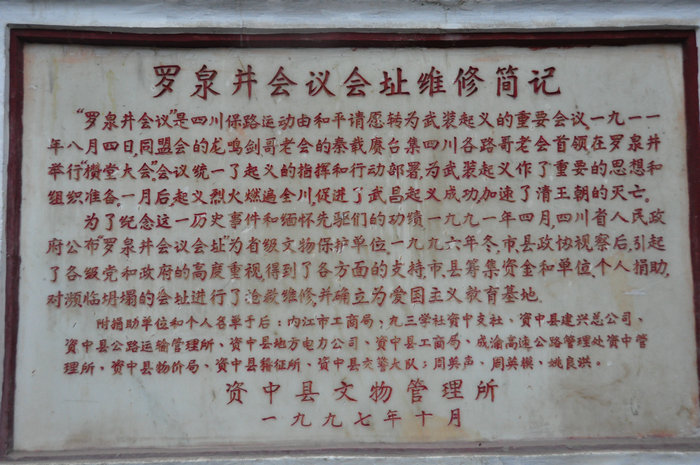 罗泉井会议会址维修简记
“罗泉井会议”是四川保路运动由和平请愿转为武装起义的重要会议,一九一一
年八月四日,同盟会的龙鸣剑哥老会的秦载赓召集四川各路哥老会首领在罗泉井
举行“攒堂大会”会议统一了起义的指挥和行动部署,为武装起义作了重要的思想和
组织准备。一月后起义烈火燃遍全川,促进了武昌起义成功,加速了清王朝的灭亡。
为了纪念这一历史事件和缅怀先驱们的功绩,一九九一年四月,四川省人民政
府公布“罗泉井会议会址”为省级文物保护单位。一九九六年冬,市县政协视察后,引起
了各级党和政府的高度重视,得到了各方面的支持,市、县筹集资金和单位、个人捐助,
对濒临坍塌的会址进行了抢救维修,并确立为爱国主义教育基地。
附捐助单位和个人名单于后：内江市工商局；九三学社资中支社、资中县建兴总公司、
资中县公路运输管理所、资中县地方电力公司、资中县工商局、成渝高速公路管理处资中管
理所、资中县物价局、资中县稽征所、资中县交警大队；周英声、周英横、姚良洪。
资中县文物管理所
一九九七年十月